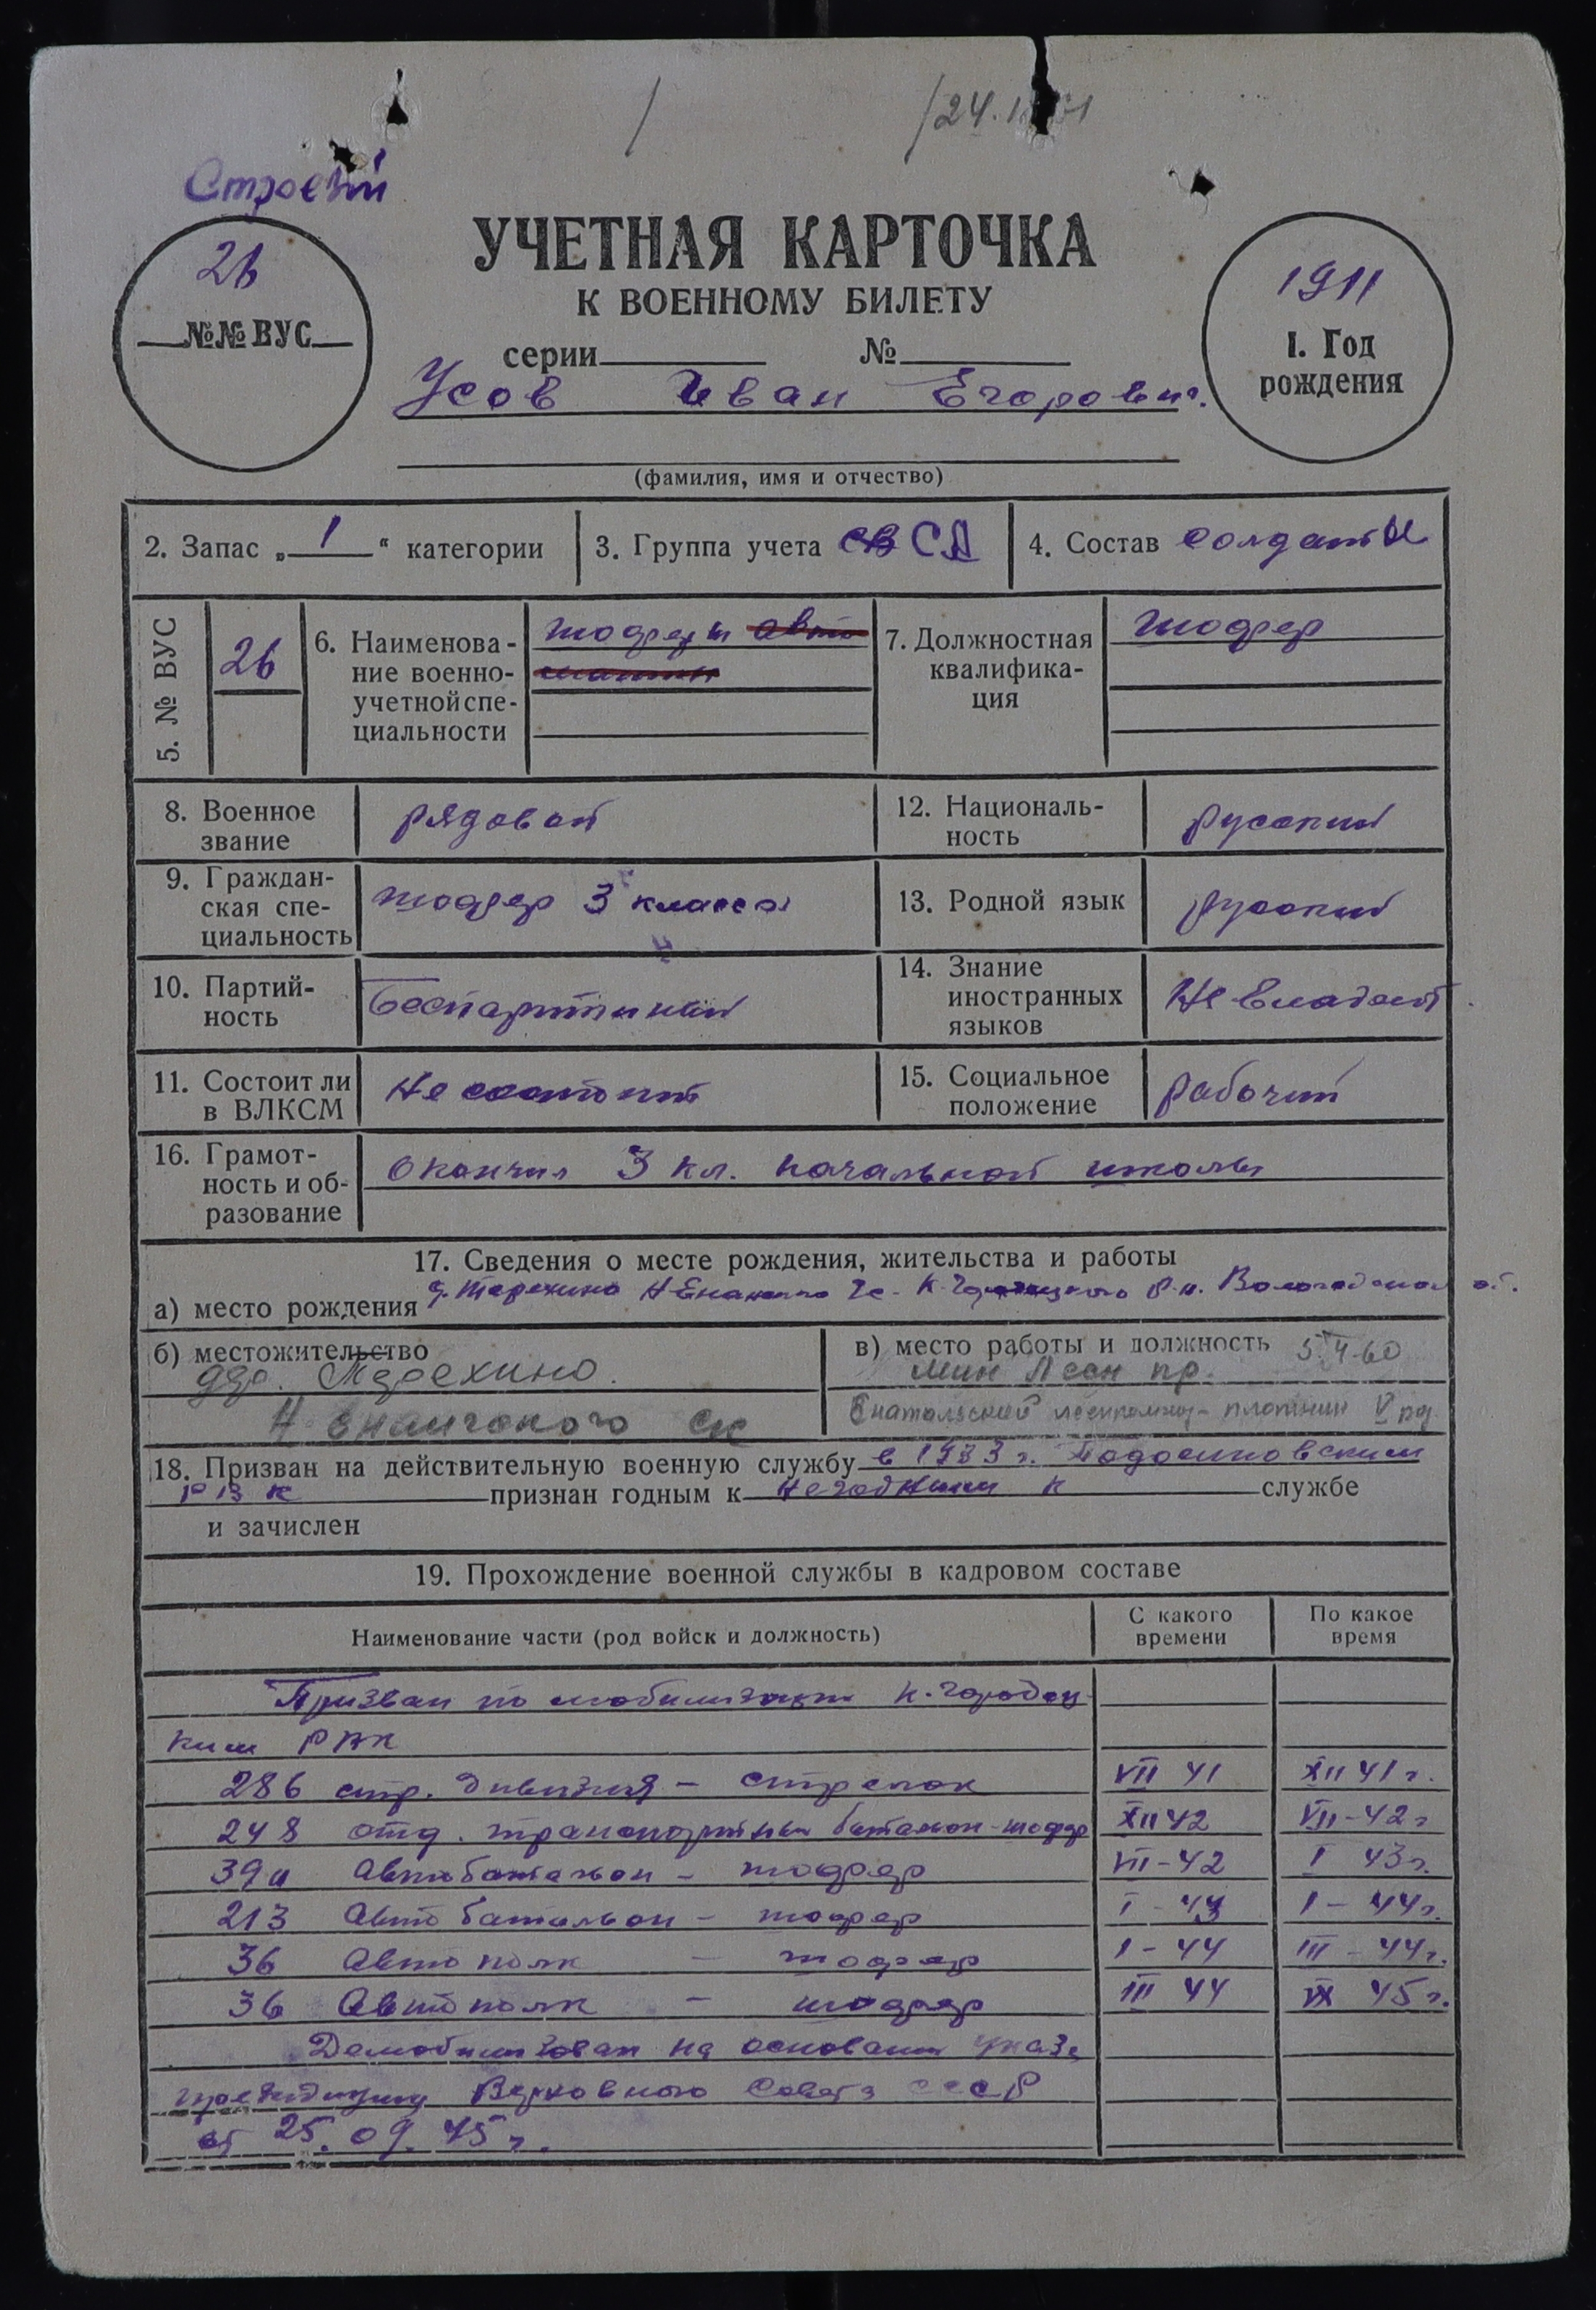 / /24.1
Строевой
УЧЕТНАЯ КАРТОЧКА
К ВОЕННОМУ БИЛЕТУ
серии №
26
№№ ВУС
1911
I. Год
рождения
Усов Иван Егорович.
(фамилия, имя и отчество)
2. Запас „ 1 “ категории
3. Группа учета СВ СА
4. Состав солдаты
5. № ВУС
26
6. Наименова-
ние военно-
учетной спе-
циальности
шофера авто
машин
7. Должностная
квалифика-
ция
шофер
8. Военное
звание
рядовой
12. Националь-
ность
русский
9. Граждан-
ская спе-
циальность
шофер 3 класса
13. Родной язык
русский
10. Партий-
ность
беспартийный
14. Знание
иностранных
языков
Не владеет.
11. Состоит ли
в ВЛКСМ
Не состоит
15. Социальное
положение
рабочий
16. Грамот-
ность и об-
разование
Окончил 3 кл. начальной школы
17. Сведения о месте рождения, жительства и работы
а) место рождения д. Терехино Н-Енанг с. К-Городецкого р.н. Вологодской об.
б) местожительство
дер. Терехино.
Н-Енангского с
в) место работы и должность 5.4-60
мин Лесн пр.
Енатальский леспромхоз- плотник V раз.
18. Призван на действительную военную службу в 1933 г. Подосиновским
РВК признан годным к негодным к службе
и зачислен
19. Прохождение военной службы в кадровом составе
Наименование части (род войск и должность)
С какого
времени
По какое
время
Призван по мобилизации К-Городец
ким РВК
286 стр. дивизия - стрелок VII 41 XII 41 г.
248 отд. транспортный батальон-шофер XII 42 VII-42 г
39й Автобатальон - шофер VII-42 I 43г.
213 Авто батальон - шофер I-43 I-44г.
36 Авто полк - шофер I-44 III-44г.
36 Автополк - шофер III 44 IX 45 г.
Демобилизован на основании указа
президиума Верховного Совета СССР
от 25.09.45 г.